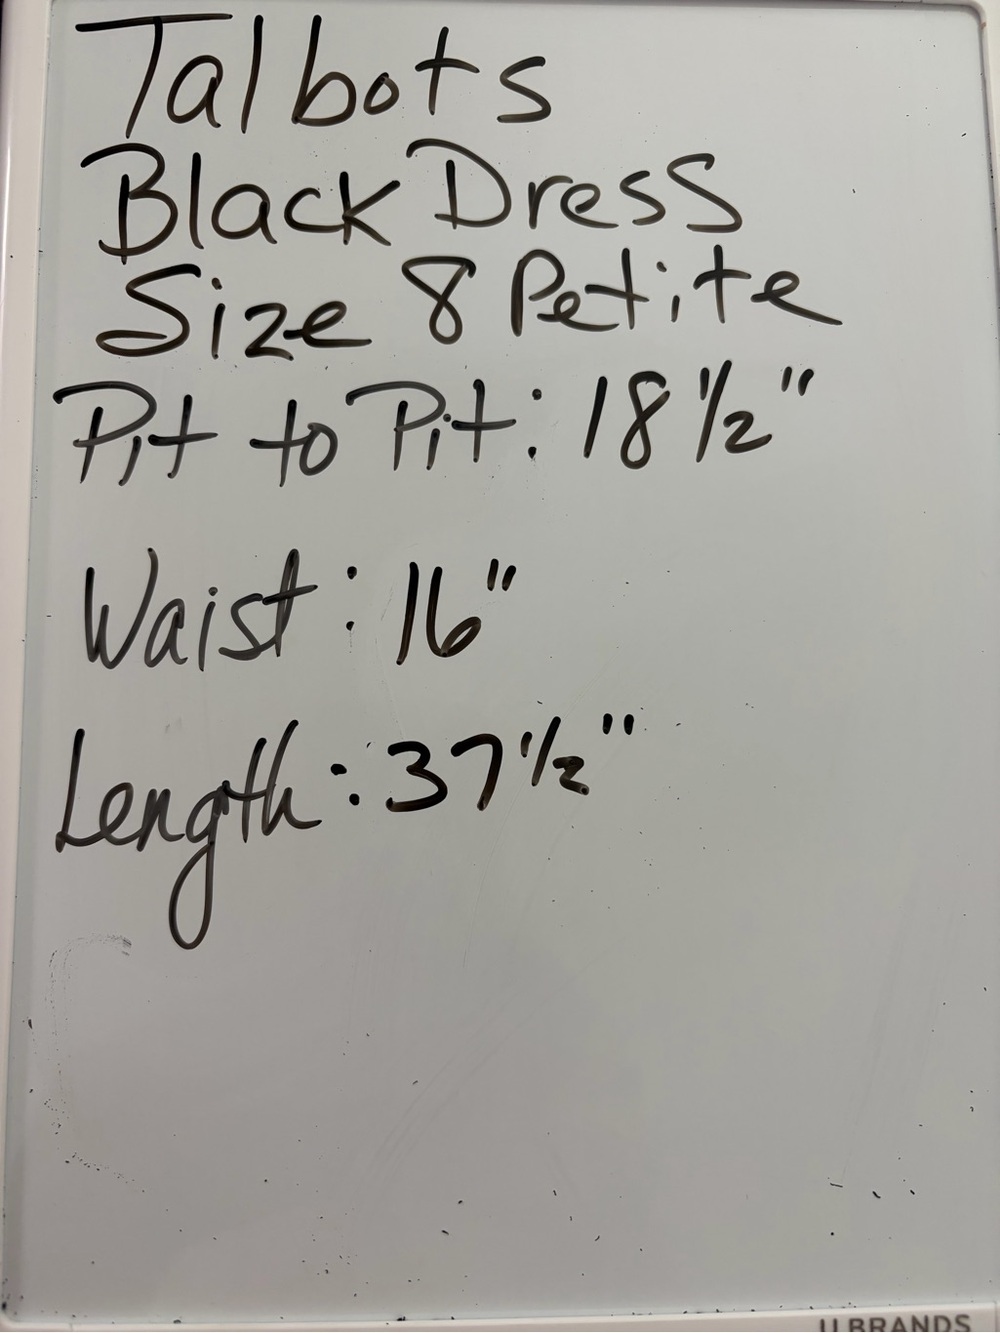 Talbots
Black Dress
Size 8 Petite
Pit to Pit: 18 1/2"
Waist: 16"
Length: 37 1/2"
U BRANDS